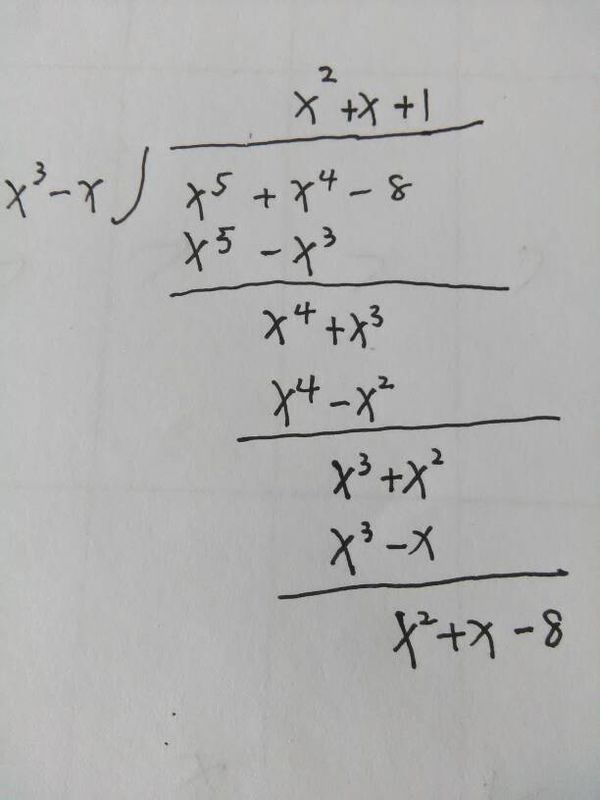 x² + x + 1
x³ - x ) x⁵ + x⁴ - 8
x⁵ - x³
x⁴ + x³
x⁴ - x²
x³ + x²
x³ - x
x² + x - 8